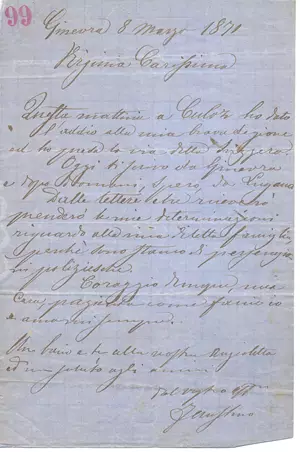 99
Ginevra 8 Marzo 1871
Virginia Carissima
Questa mattina a Culoz ho dato
l'addio alla mia brava legione
ed ho preso la via della Svizzera.
Oggi ti scrivo da Ginevra
e dopo domani, spero, da Lugano
Dalle lettere che riceverò
prenderò le mie determinazioni
riguardo alla mia diletta famiglia,
perchè sono stanco di
Coraggio dunque, mia
Cara, pazienta come faccio io
e amami sempre.
Un bacio a te alla nostra Angioletta
ed un saluto agli amici